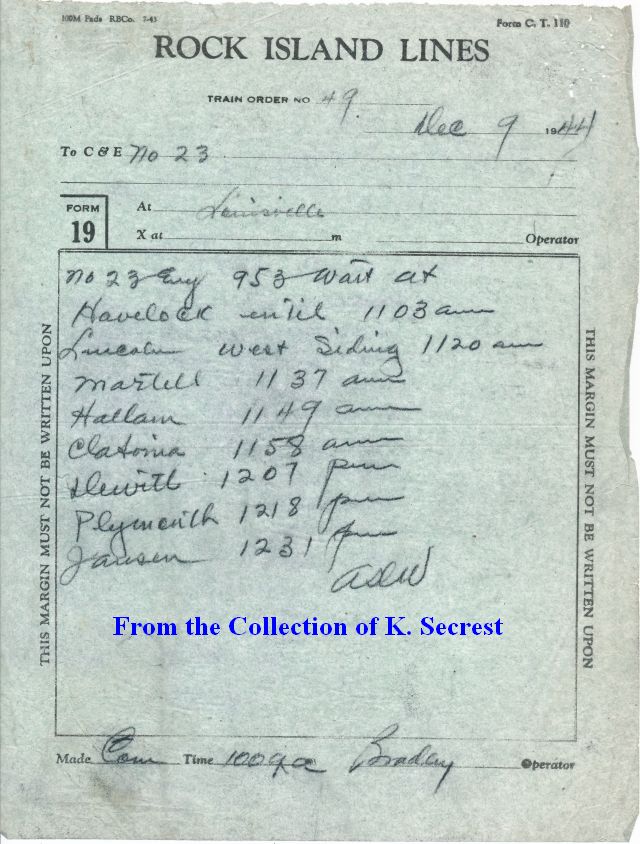 100M Pads RBCo. 7-43 Form C. T. 110
ROCK ISLAND LINES
TRAIN ORDER NO 49
Dec 9 1944
To C & E No 23
FORM 19
At Louisville
X at m Operator
No 23 Eng 953 Wait at
Havelock until 1103 am
Lincoln West Siding 1120 am
Martell 1137 am
Hallam 1149 am
Clatonia 1158 am
Dewitt 1207 pm
Plymouth 1218 pm
Jansen 1231 pm
ASW
THIS MARGIN MUST NOT BE WRITTEN UPON
THIS MARGIN MUST NOT BE WRITTEN UPON
From the Collection of K. Secrest
Made Com Time 1009 a Bradley Operator